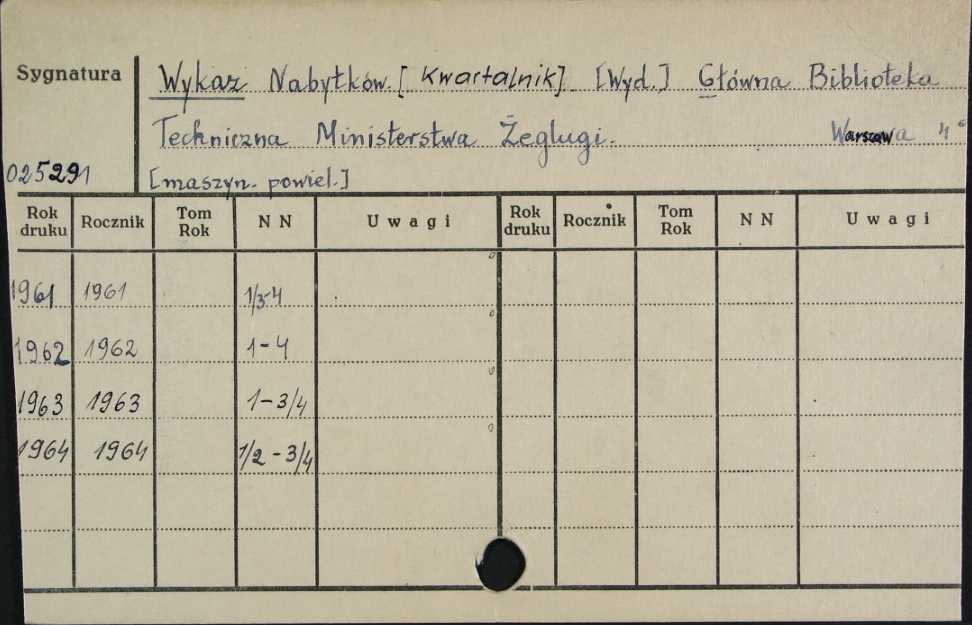 Sygnatura
Wykaz Nabytków. [Kwartalnik]. [Wyd.] Główna Biblioteka
Techniczna Ministerstwa Żeglugi. Warszawa 4°
025291
[maszyn. powiel.]
Rok druku Rocznik Tom Rok NN Uwagi Rok druku Rocznik Tom Rok NN Uwagi
1961 1961 1/3-4
1962 1962 1-4
1963 1963 1-3/4
1964 1964 1/2-3/4